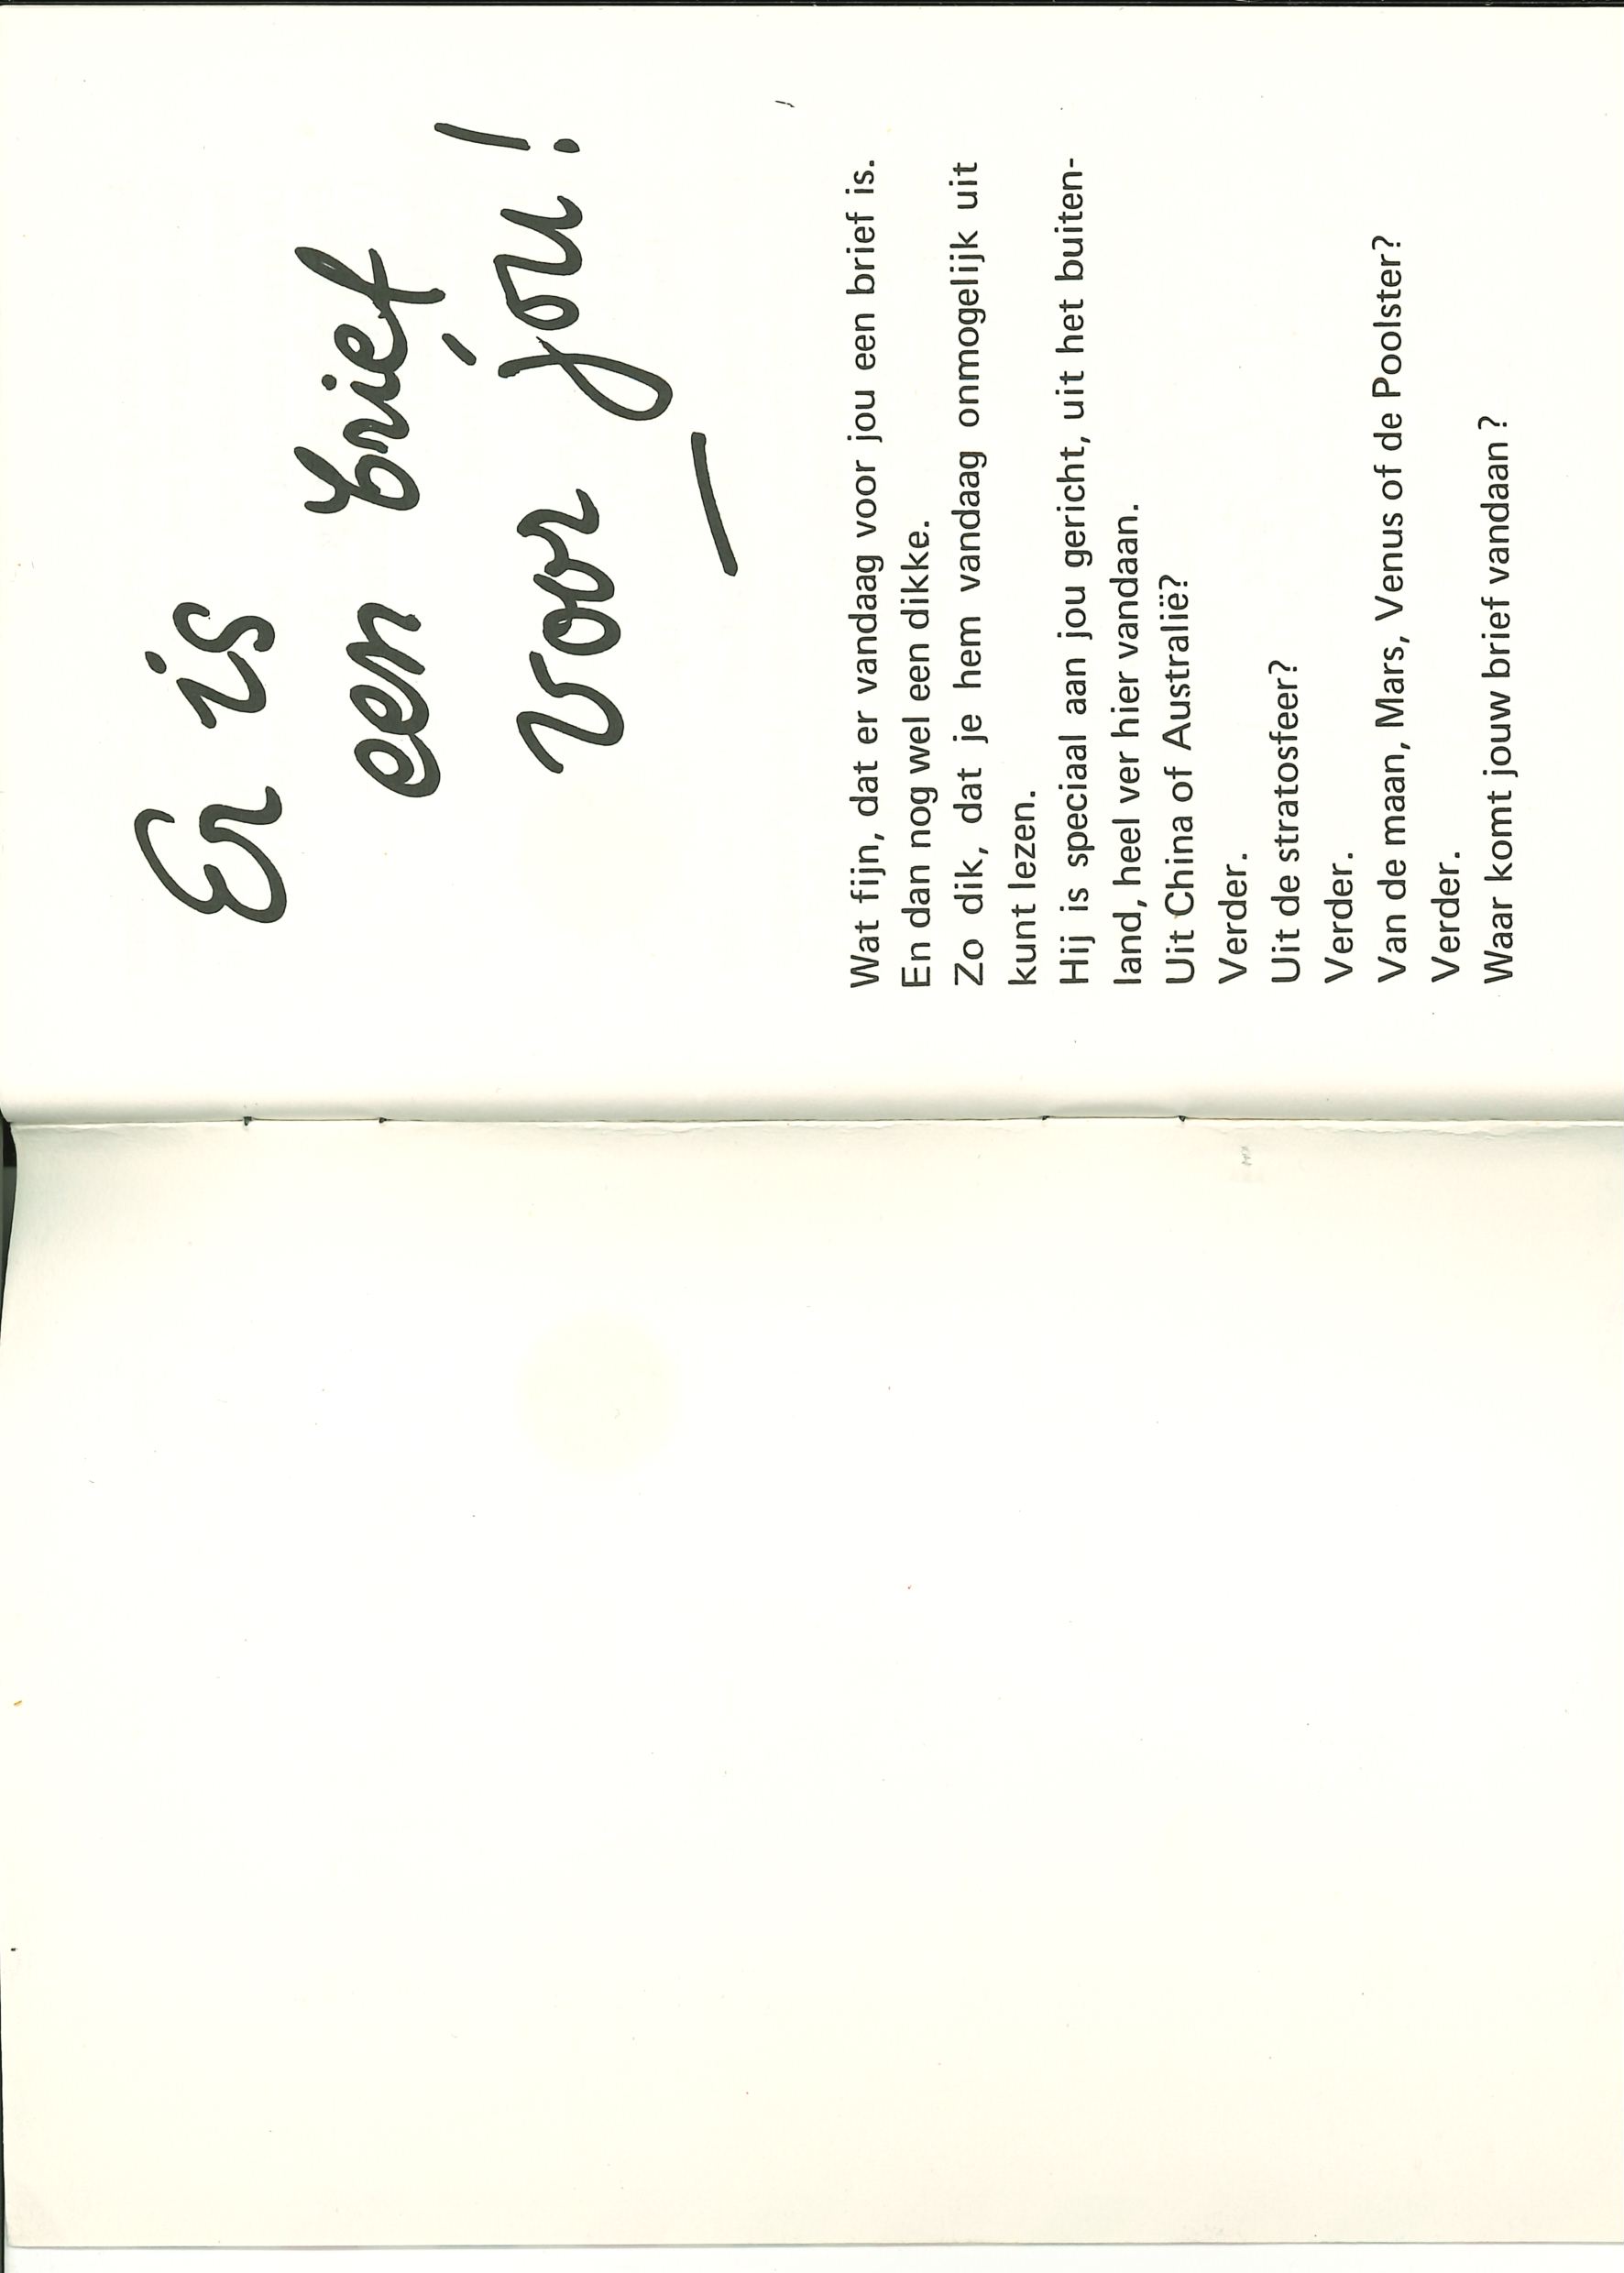 Er is
een brief
voor jou!
Wat fijn, dat er vandaag voor jou een brief is.
En dan nog wel een dikke.
Zo dik, dat je hem vandaag onmogelijk uit
kunt lezen.
Hij is speciaal aan jou gericht, uit het buiten-
land, heel ver hier vandaan.
Uit China of Australië?
Verder.
Uit de stratosfeer?
Verder.
Van de maan, Mars, Venus of de Poolster?
Verder.
Waar komt jouw brief vandaan?